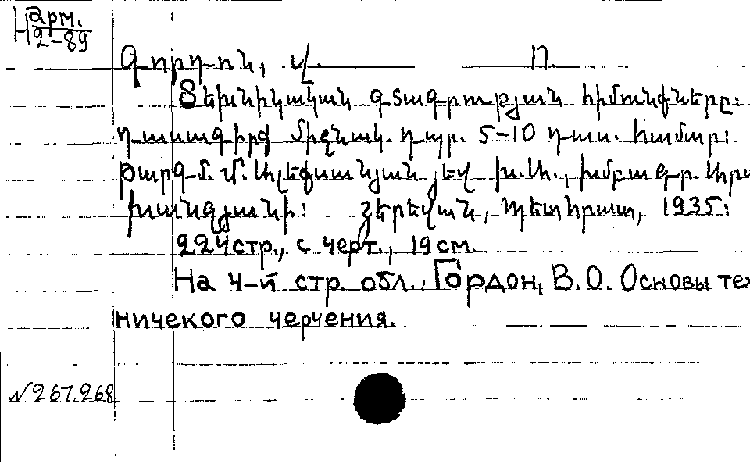 Н арм.
2-89
Գորդոն, Վ. Օ.
Տեխնիկական գծագրության հիմունքները:
դասագիրք միջնակ. դպր. 5-10 դաս. համար:
թարգմ. Մ. Ալեքսանյան յեվ խ. Ա., խմբագր.
խանջյանի: Յերեվան, Պետհրատ, 1935:
224 стр., с черт., 19 см.
На 4-й стр. обл.: Гордон, В.О. Основы тех
ничекого черчения.
N 267.268